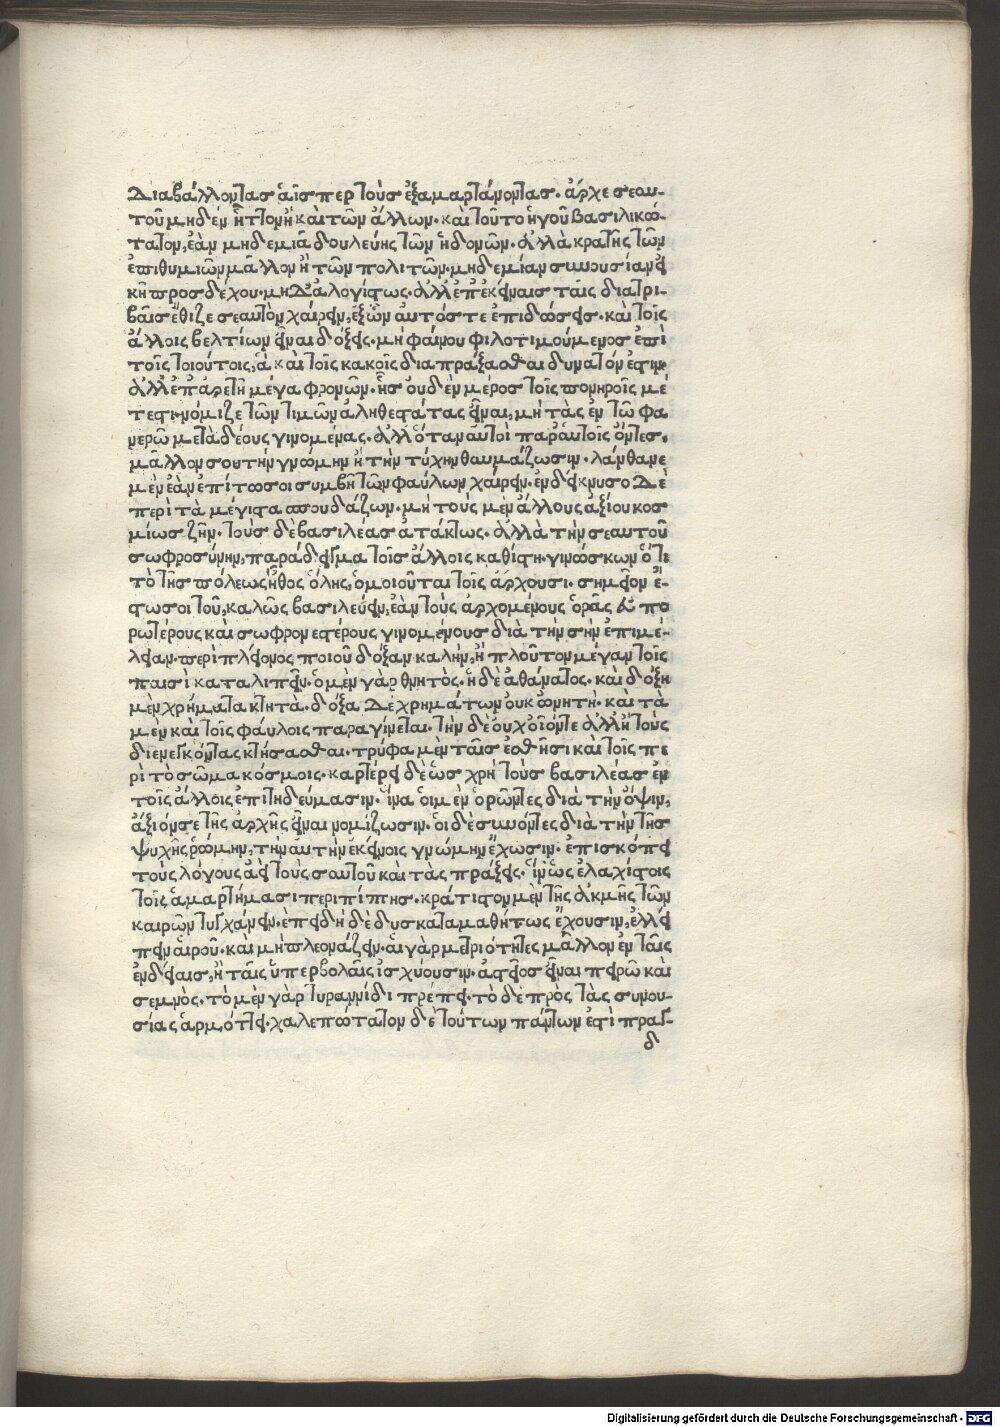 Διαβάλλοντας αἷσπερ τοὺς ἐξαμαρτάνοντας. ἄρχε σεαυ-
τοῦ μηδὲν ἧττον ἢ καὶ τῶν ἄλλων. καὶ τοῦτο ἡγοῦ βασιλικώ-
τατον, ἐὰν μηδεμιᾷ δουλεύῃς τῶν ἡδονῶν. ἀλλὰ κρατῇς τῶν
ἐπιθυμιῶν μᾶλλον ἢ τῶν πολιτῶν. μηδεμίαν συνουσίαν εἰ
κῇ προσδέχου. μὴ Δ' ἀλογίστως. ἀλλ' ἐπ' ἐκείναις ταῖς διατρι-
βαῖς ἔθιζε σεαυτὸν χαίρειν, ἐξ ὧν αὐτός τε ἐπιδώσεις. καὶ τοῖς
ἄλλοις βελτίων εἶναι δόξεις. μὴ φαίνου φιλοτιμούμενος ἐπὶ
τοῖς τοιούτοις, ἃ καὶ τοῖς κακοῖς διαπράξασθαι δυνατόν ἐστιν.
ἀλλ' ἐπ' ἀρετῇ μέγα φρονῶν. ἧς οὐδὲν μέρος τοῖς πονηροῖς μέ
τεστι. νόμιζε τῶν τιμῶν ἀληθεστάτας εἶναι, μὴ τὰς ἐν τῷ φα
νερῷ μετὰ δέους γινομένας. ἀλλ' ὅταν αὐτοὶ παρ' αὑτοῖς ὄντες.
μᾶλλον σου τὴν γνώμην ἢ τὴν τύχην θαυμάζωσιν. λάνθανε
μὲν ἐὰν ἐπίτῳ σοι συμβῇ τῶν φαύλων χαίρειν. ἐνδείκνυσο Δὲ
περὶ τὰ μέγιστα σπουδάζων. μὴ τοὺς μὲν ἄλλους ἀξίου κοσ
μίως ζῆν. τοὺς δὲ βασιλέας ἀτάκτως. ἀλλὰ τὴν σεαυτοῦ
σωφροσύνην, παράδειγμα τοῖς ἄλλοις καθίστη. γινώσκων ὅτι
τὸ τῆς πόλεως ἦθος ὅλης, ὁμοιοῦται τοῖς ἄρχουσι. σημεῖον ἔ-
στω σοι τοῦ, καλῶς βασιλεύειν, ἐὰν τοὺς ἀρχομένους ὁρᾷς εὐπο
ρωτέρους καὶ σωφρονεστέρους γινομένους διὰ τὴν σὴν ἐπιμέ-
λειαν. περὶ πλείονος ποιοῦ δόξαν καλὴν, ἢ πλοῦτον μέγαν τοῖς
παισὶ καταλιπεῖν. ὁ μὲν γὰρ θνητός. ἡ δὲ ἀθάνατος. καὶ δόξῃ
μὲν χρήματα κτητὰ. δόξα Δὲ χρημάτων οὐκ ὠνητὴ. καὶ τὰ
μὲν καὶ τοῖς φαύλοις παραγίνεται. τὴν δὲ οὐχ οἷόν τε ἀλλ' ἢ τοὺς
διενεγκόντας κτήσασθαι. τρύφα μὲν ταῖς ἐσθῆσι καὶ τοῖς πε
ρὶ τὸ σῶμα κόσμοις. καρτέρει δὲ ὡς χρὴ τοὺς βασιλέας ἐν
τοῖς ἄλλοις ἐπιτηδεύμασιν. ἵνα οἱ μὲν ὁρῶντες διὰ τὴν ὄψιν,
ἄξιόν σε τῆς ἀρχῆς εἶναι νομίζωσιν. οἱ δὲ συνόντες διὰ τὴν τῆς
ψυχῆς ῥώμην, τὴν αὐτὴν ἐκείνοις γνώμην ἔχωσιν. ἐπισκόπει
τοὺς λόγους ἀεὶ τοὺς σαυτοῦ καὶ τὰς πράξεις. ἵν' ὡς ἐλαχίστοις
τοῖς ἁμαρτήμασι περιπίπτῃς. κράτιστον μὲν τῆς ἀκμῆς τῶν
καιρῶν τυγχάνειν. ἐπειδὴ δὲ δυσκαταμαθήτως ἔχουσιν, ἐλλεί
πειν αἱροῦ. καὶ μὴ πλεονάζειν. αἱ γὰρ μετριότητες μᾶλλον ἐν ταῖς
ἐνδείαις, ἢ ταῖς ὑπερβολαῖς ἰσχύουσιν. ἀστεῖος εἶναι πειρῶ καὶ
σεμνός. τὸ μὲν γὰρ τυραννίδι πρέπει. τὸ δὲ πρὸς τὰς συνου-
σίας ἁρμόττει. χαλεπώτατον δὲ τούτων πάντων ἐστὶ πραγ-
δ